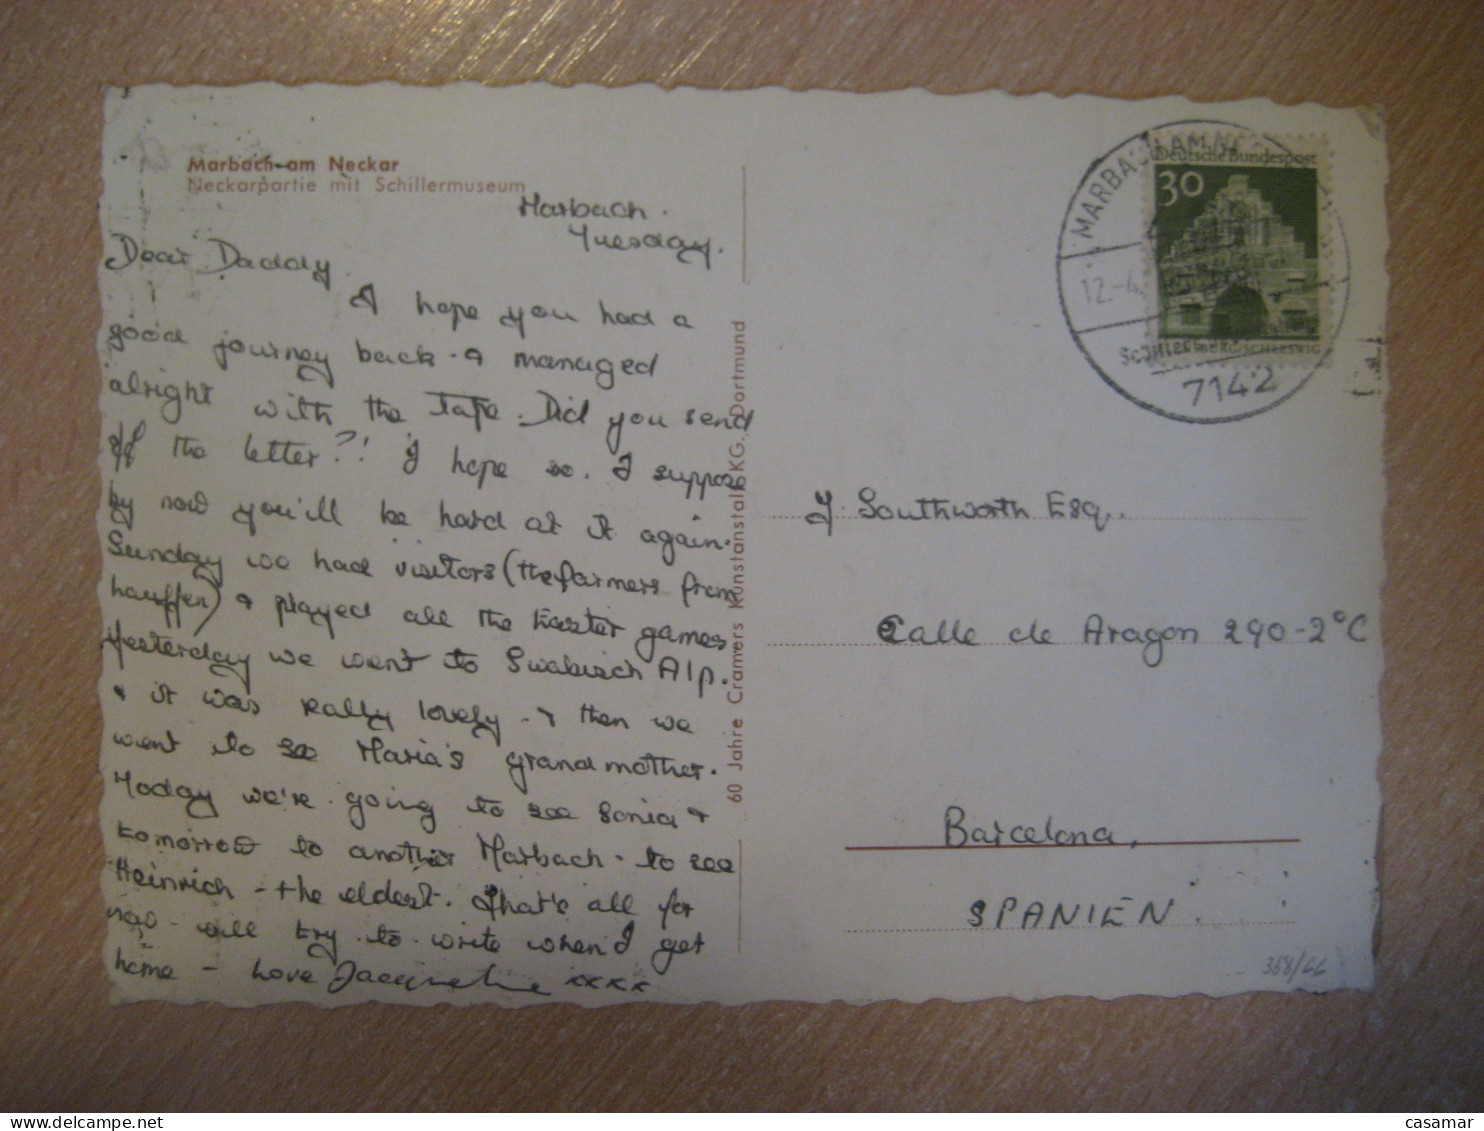 Marbach am Neckar
Neckarpartie mit Schillermuseum
Marbach.
Tuesday.
Dear Daddy
I hope you had a
good journey back & managed
alright with the tape. Did you send
off the letter?! I hope so. I suppose
by now you'll be hard at it again.
Sunday we had visitors (the farmers from
hauffen) & played all the Easter games
Yesterday we went to Swabisch Alp.
& it was really lovely - & then we
went to see Maria's grandmother.
Today we're going to see Sonia &
tomorrow to another Marbach - to see
Heinrich - the eldest. That's all for
now - will try to write when I get
home - Love Jacqueline xxxx
60 Jahre Cramers Kunstanstalt KG, Dortmund
MARBACH AM NE
12.-4.
SCHILLER
7142
Deutsche Bundespost
30
FLENSBURG/SCHLESWIG
J. Southworth Esq.
Calle de Aragon 290-2°C
Barcelona,
SPANIEN.
358/66
casamar